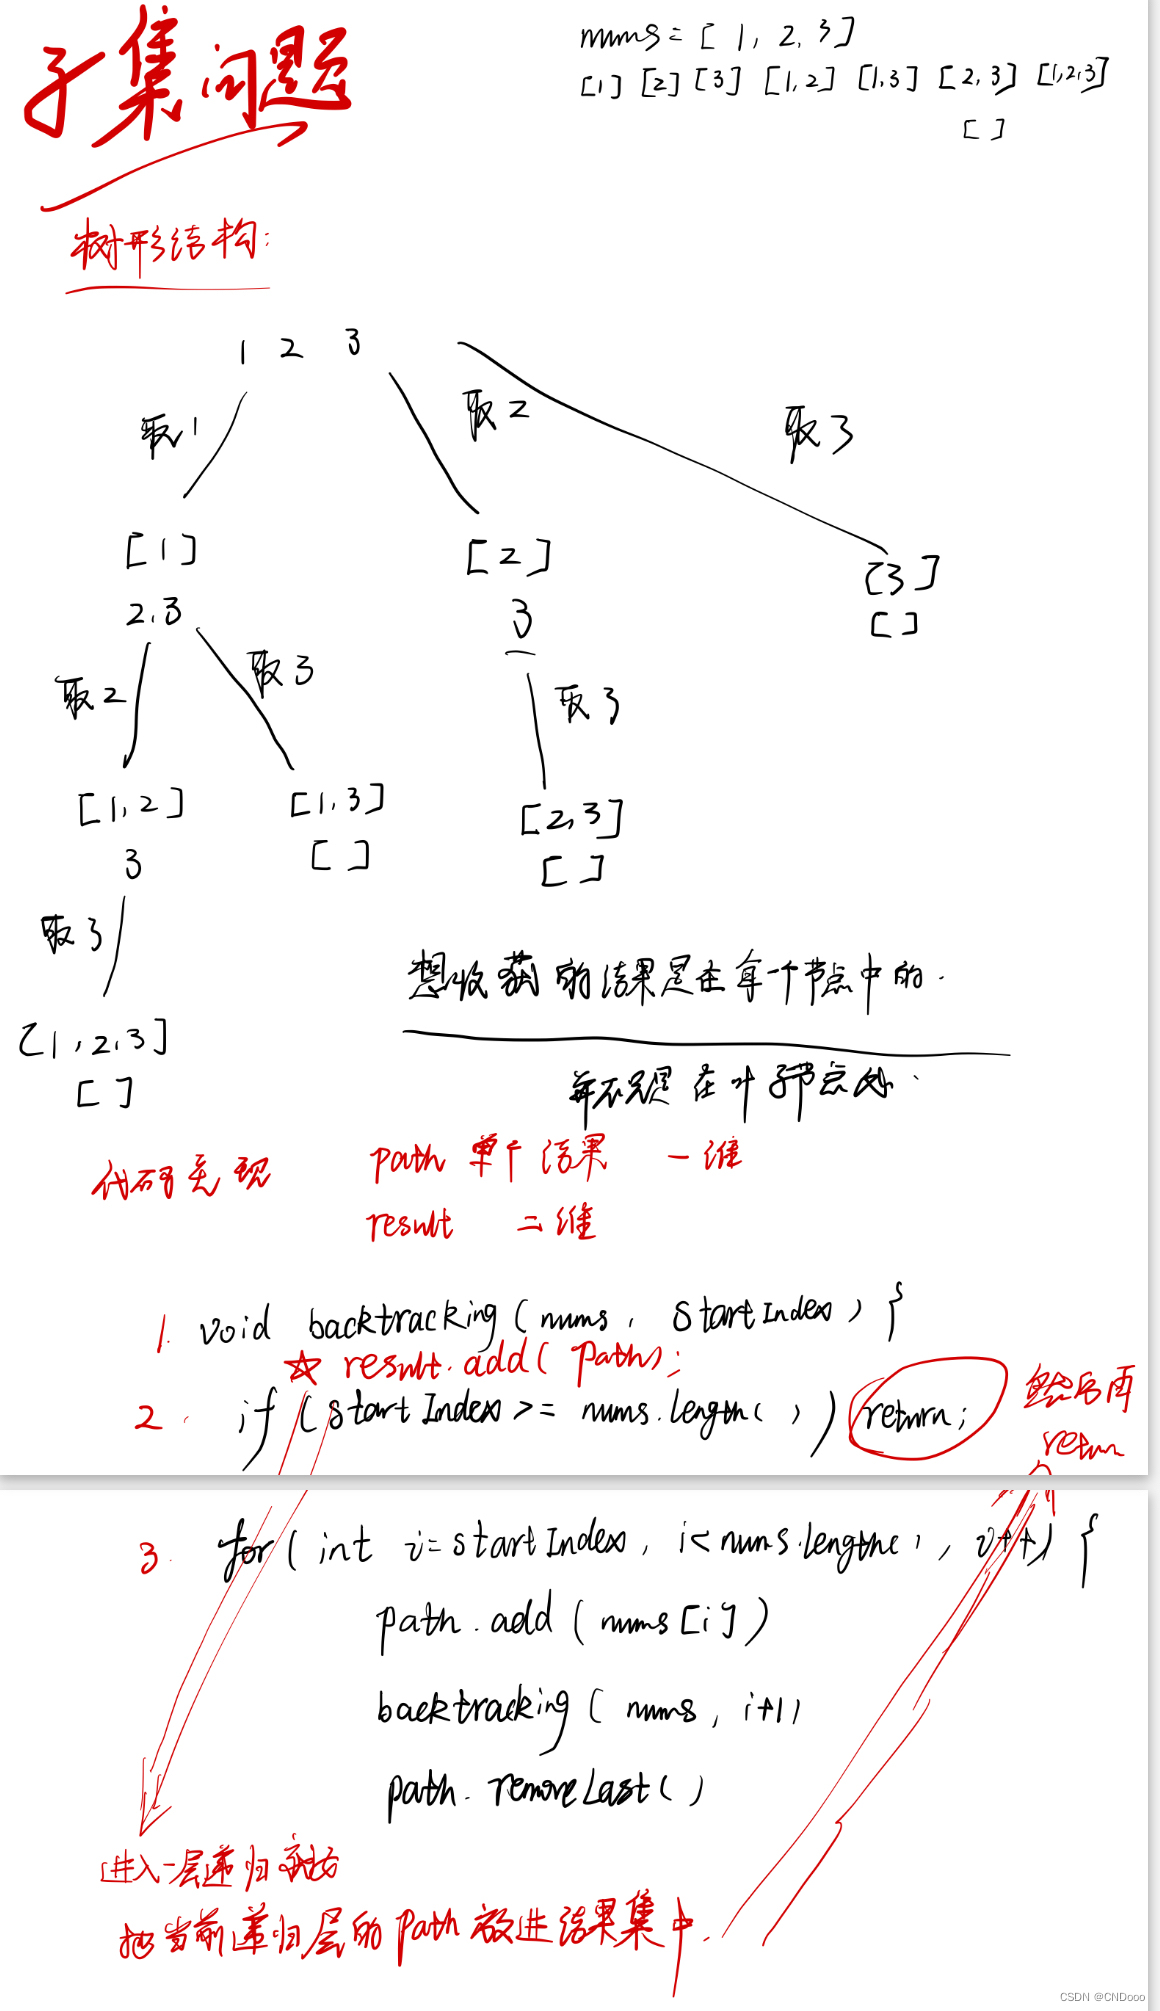 子集问题
nums = [ 1, 2, 3 ]
[1] [2] [3] [1,2] [1,3] [2,3] [1,2,3]
[ ]
树形结构:
1 2 3
取1 取2 取3
[1] [2] [3]
2.3 3 [ ]
取2 取3 取3
[1,2] [1,3] [2,3]
3 [ ] [ ]
取3
[1,2,3]
[ ]
想收获的结果是在每一个节点中的.
并不只是在叶子节点处.
代码实现 path 单个结果 一维
result 二维
1. void backtracking ( nums, startIndex ) {
☆ result.add( path);
2. if ( startIndex >= nums.length( ) ) return; 然后再
retun
3. for ( int i=startIndex, i<nums.length( ), i++) {
path.add ( nums [i] )
backtracking ( nums, i+1)
path.removeLast( )
进入一层递归
把当前递归层的path放进结果集中.
CSDN @CNDooo